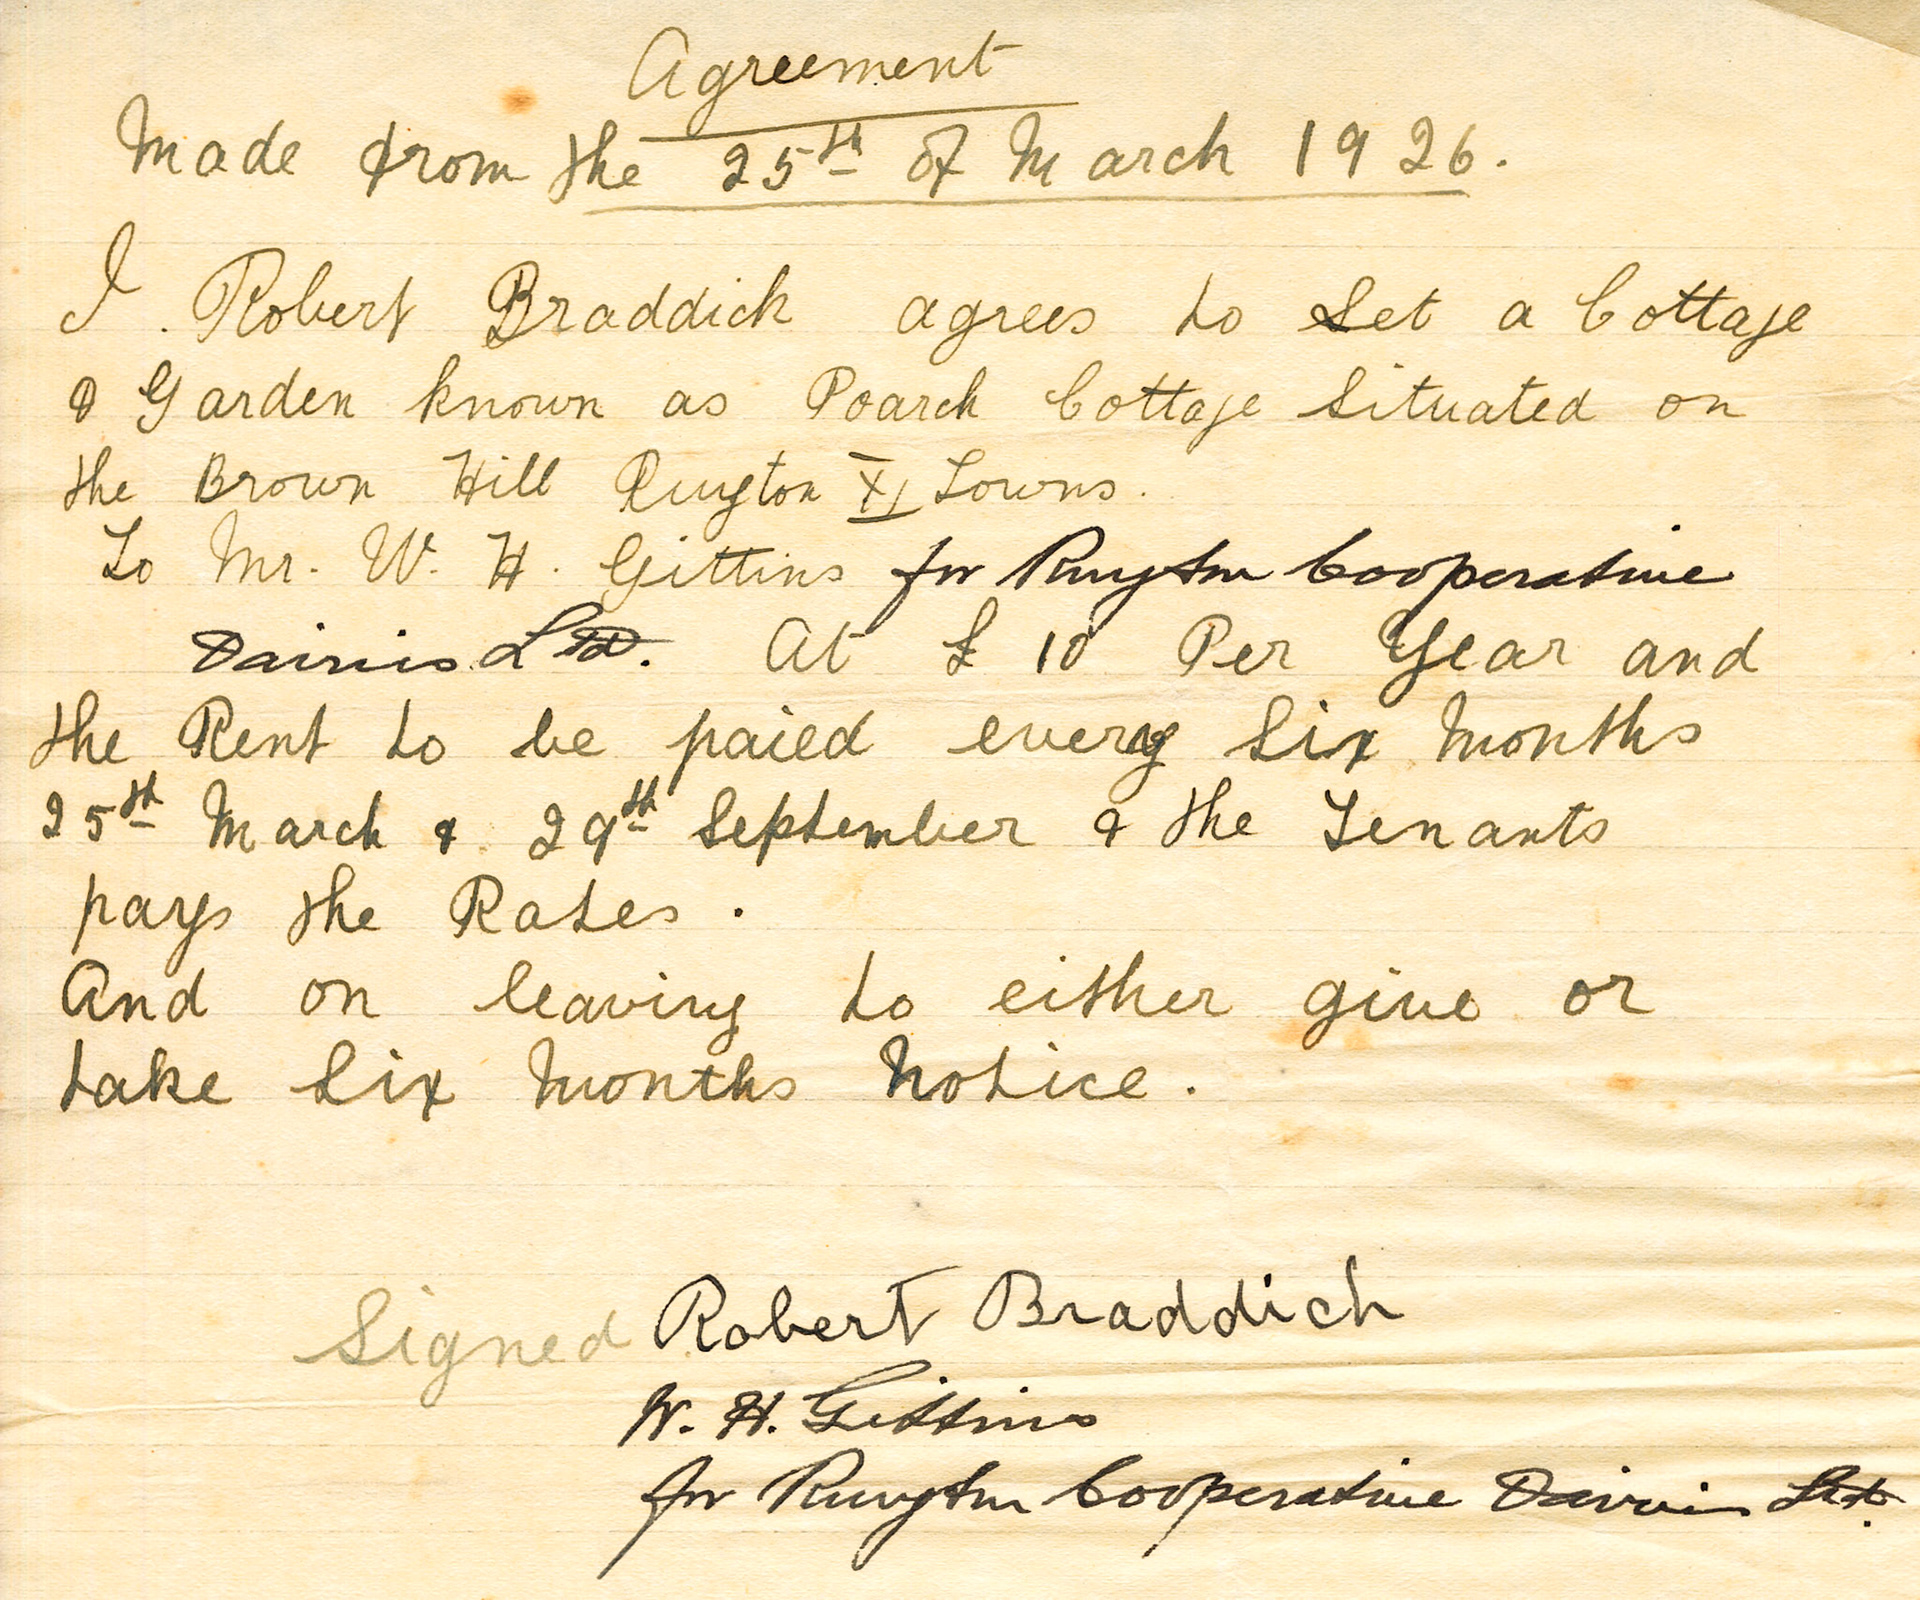 Agreement
Made from the 25th of March 1926.
I. Robert Braddick agrees to Let a Cottage
& Garden known as Poarch Cottage Situated on
the Brown Hill Ruyton XI Towns.
To Mr. W. H. Gittins for Ruyton Cooperative
Dairies Ltd. At £10 Per Year and
the Rent to be paied every Six Months
25th March & 29th September & the Tenants
pays the Rates.
And on leaving to either give or
take Six Months Notice.
Signed Robert Braddick
W. H. Gittins
for Ruyton Cooperative Dairies Ltd.